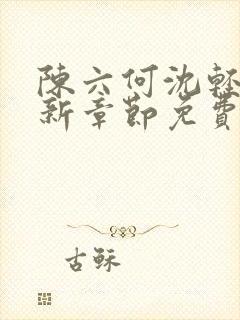 陳六何沈輕
新章節免費
古稣